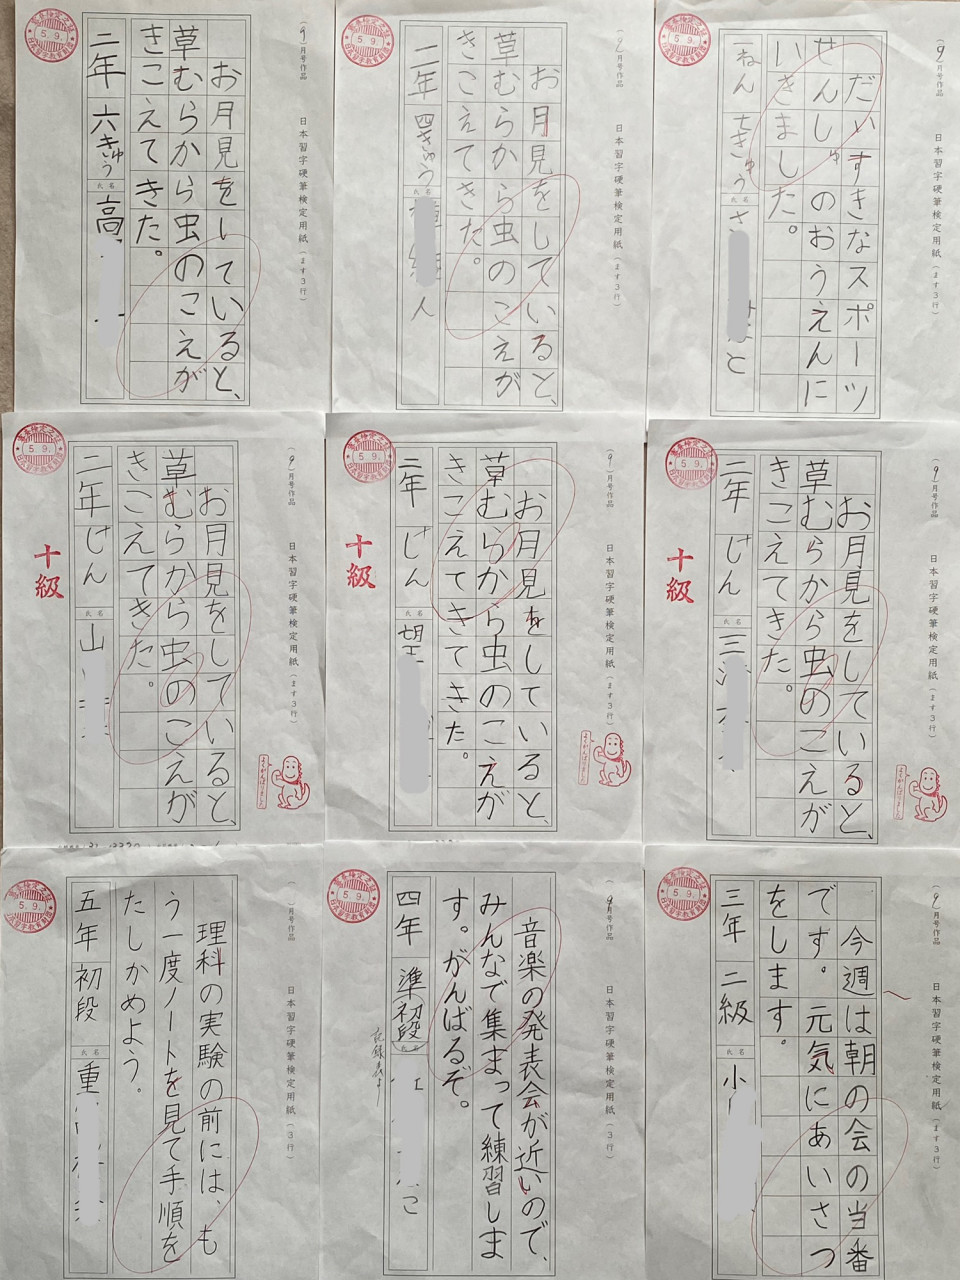 (9)月号作品
日本習字硬筆検定用紙(ます3行)
お月見をしていると、
草むらから虫のこえが
きこえてきた。
二年 六きゅう 氏名 高
5.9.
月号作品
日本習字硬筆検定用紙(ます3行)
お月見をしていると、
草むらから虫のこえが
きこえてきた。
二年 四きゅう 氏名 人
5.9.
(9)月号作品
日本習字硬筆検定用紙(ます3行)
だいすきなスポーツ
せんしゅのおうえんに
いきました。
一ねん きゅう 氏名 さ と
5.9.
(9)月号作品
日本習字硬筆検定用紙(ます3行)
お月見をしていると、
草むらから虫のこえが
きこえてきた。
二年 じん 氏名 山
5.9.
十級
よくがんばりました
(9)月号作品
日本習字硬筆検定用紙(ます3行)
お月見をしていると、
草むらから虫のこえが
きこえてきてきた。
二年 じん 氏名 望
5.9.
十級
よくがんばりました
(9)月号作品
日本習字硬筆検定用紙(ます3行)
お月見をしていると、
草むらから虫のこえが
きこえてきた。
二年 じん 氏名 三
5.9.
十級
よくがんばりました
( )月号作品
日本習字硬筆検定用紙(3行)
理科の実験の前には、も
う一度ノートを見て手順を
たしかめよう。
五年 初段 氏名 重
5.9.
9月号作品
日本習字硬筆検定用紙(3行)
音楽の発表会が近いので、
みんなで集まって練習しま
す。がんばるぞ。
四年 準初段 氏名 こ
記録表より
5.9.
(9)月号作品
日本習字硬筆検定用紙(ます3行)
今週は朝の会の当番
です。元気にあいさつ
をします。
三年 二級 氏名 小
5.9.